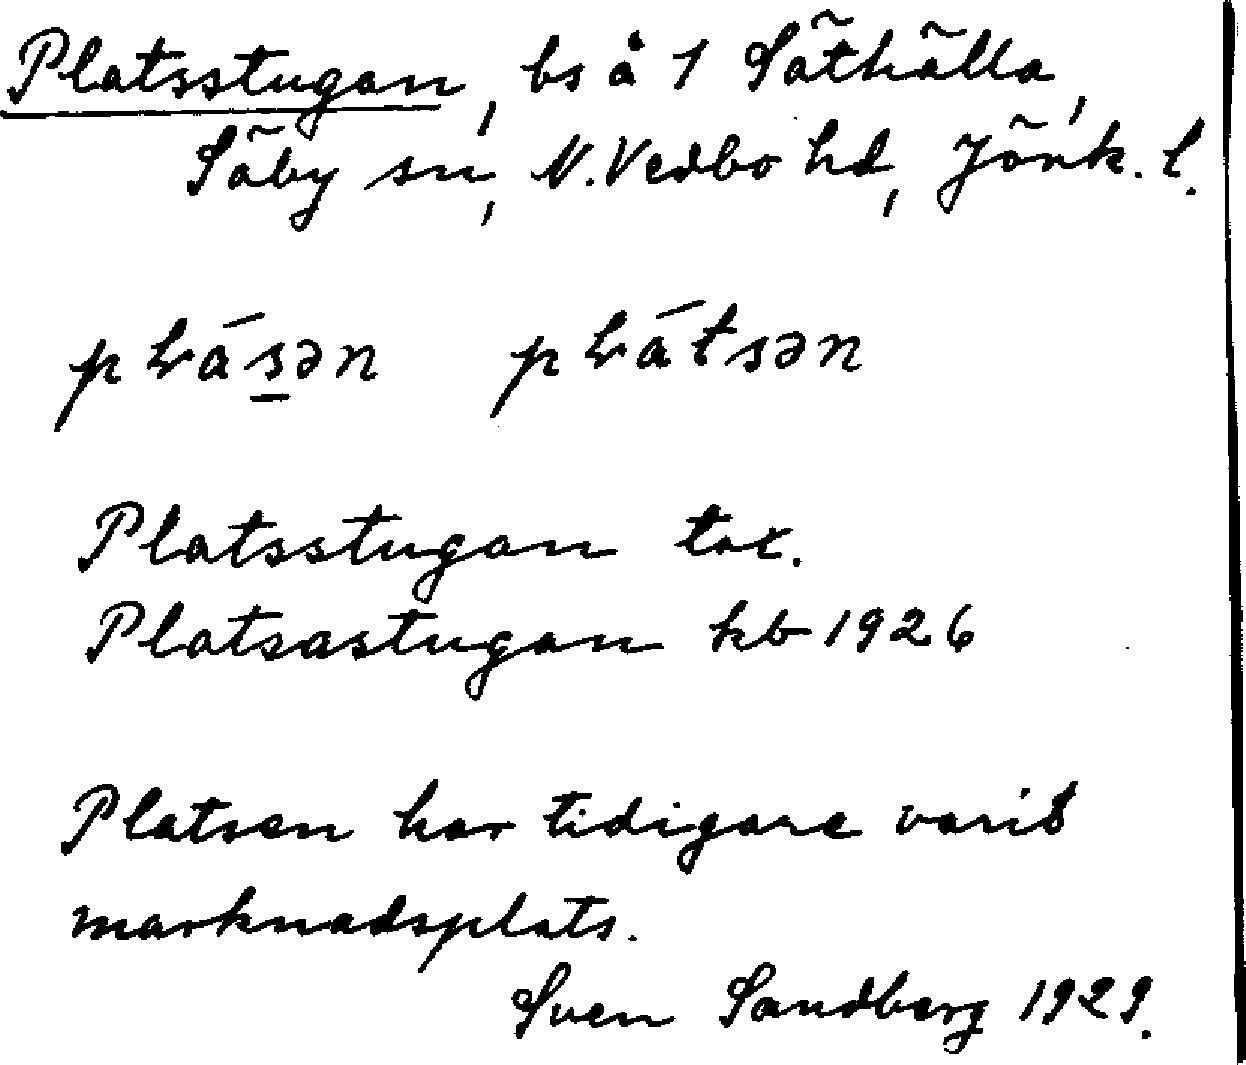 Platsstugan, bs å 1 Säthälla,
Säby sn, N. Vedbo hd, Jönk. l.
Platsstugan tax.
Platsastugan kb 1926
Platsen har tidigare varit
marknadsplats.
Sven Sandberg 1929.